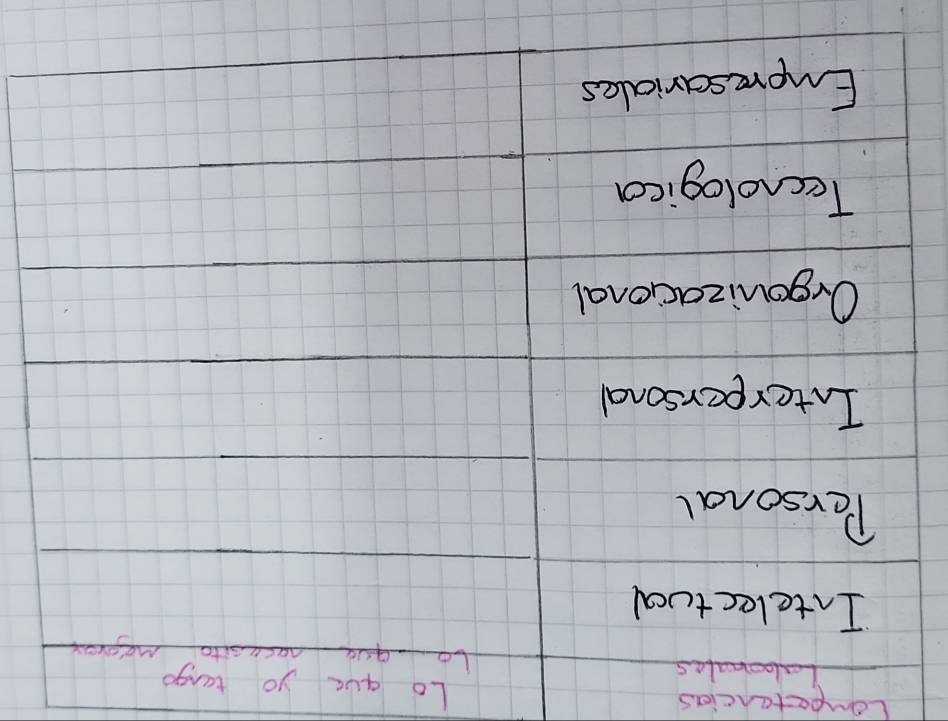 Competencias
Laborales
Lo que yo tengo
Lo que necesito mejorar
Intelectual
Personal
Interpersonal
Organizacional
Tecnologica
Empresariales